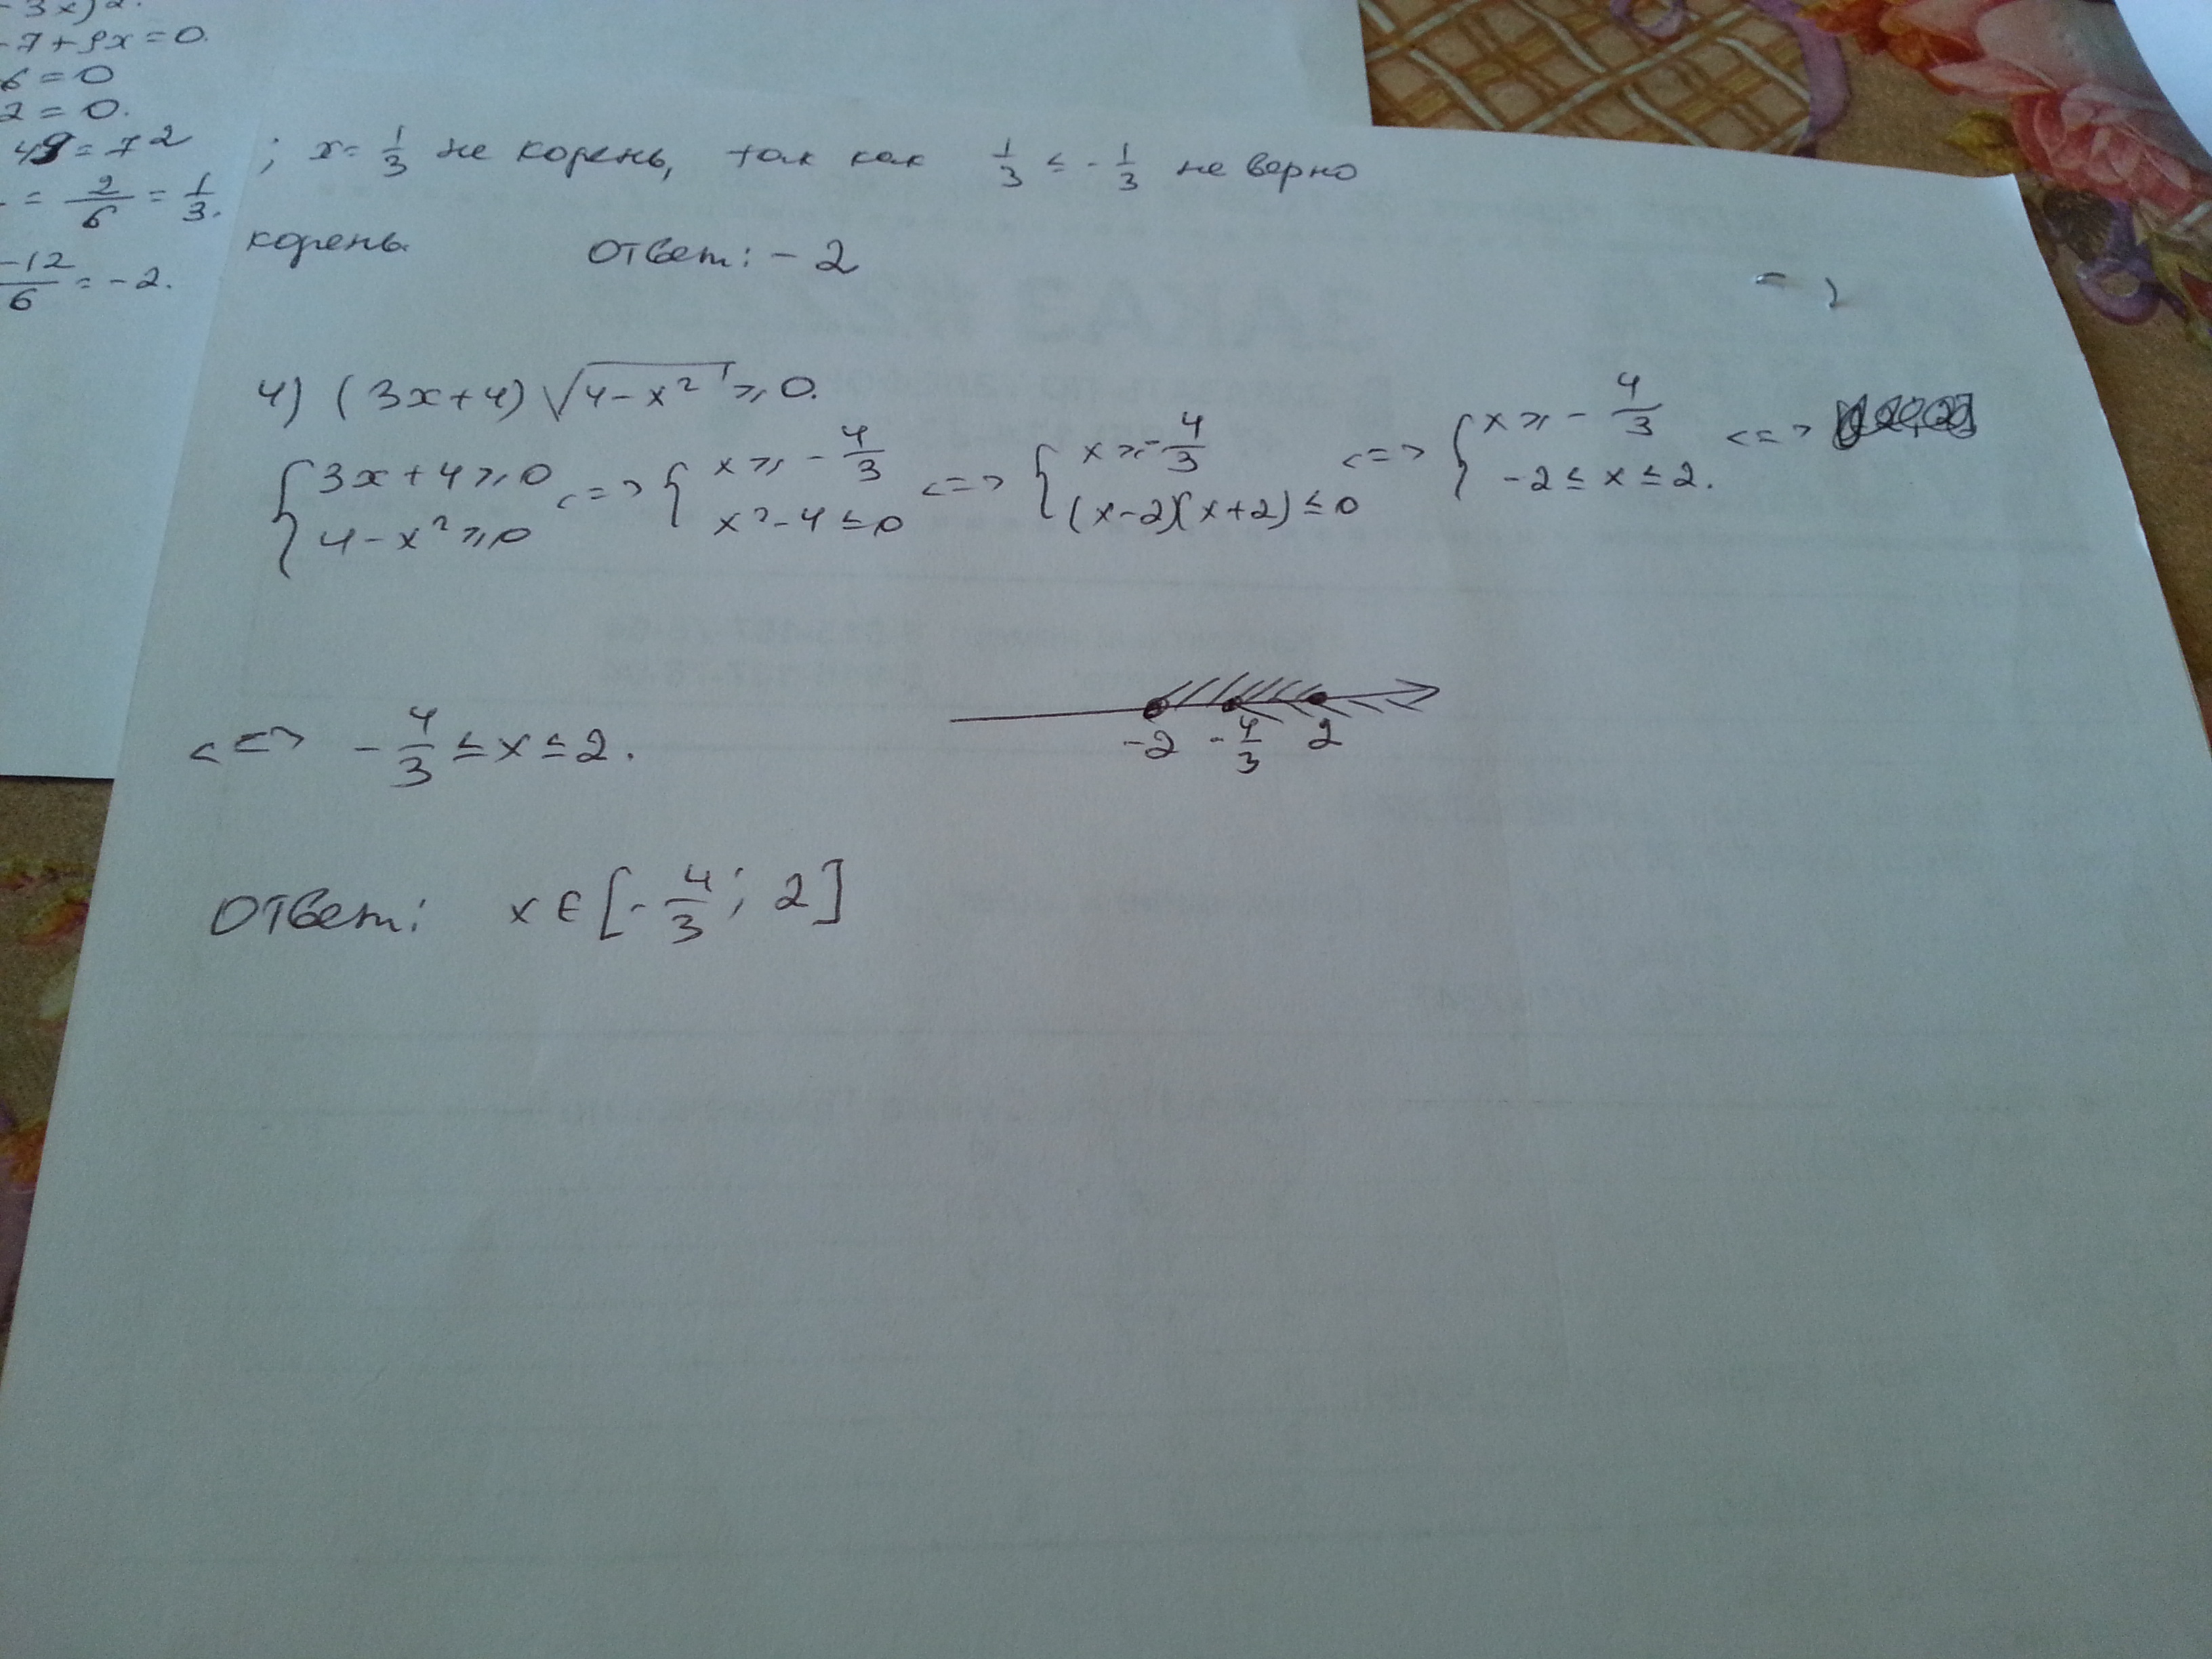 - 3x)2.
-7+9x=0.
6=0
2=0.
49=7²
= 2/6 = 1/3.
-12/6 = -2.
; x= 1/3 не корень, так как 1/3 ≤ -1/3 не верно
корень Ответ: -2
4) (3x+4) √(4-x²) ≥ 0.
{ 3x+4 ≥ 0 ; 4-x² ≥ 0 <=> { x ≥ -4/3 ; x²-4 ≤ 0 <=> { x ≥ -4/3 ; (x-2)(x+2) ≤ 0 <=> { x ≥ -4/3 ; -2 ≤ x ≤ 2. <=>
-2 -4/3 2
<=> -4/3 ≤ x ≤ 2.
Ответ: x ∈ [-4/3; 2]